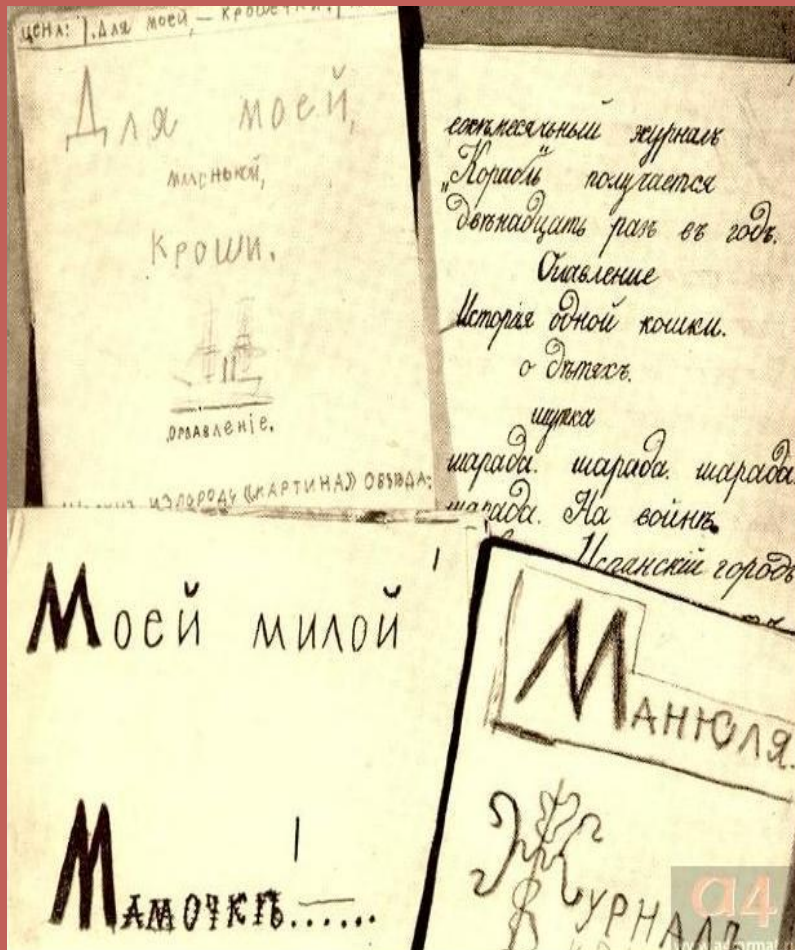 ЦЕНА: 1. Для моей, — крошечки.
Для моей,
маленькой,
кроши.
оглавленіе.
ИЗ ПОРОДЫ «КАРТИНА» ОБѢДА:
ежемесячный журналъ
„Корабль" получается
двѣнадцать разъ въ годъ.
Оглавление
Исторія одной кошки.
о дѣтяхъ.
шутка
шарада. шарада. шарада.
шарада. На войнѣ.
Испанскій городъ
Моей милой
Мамочкѣ......
Манюля.
Журналъ
a4